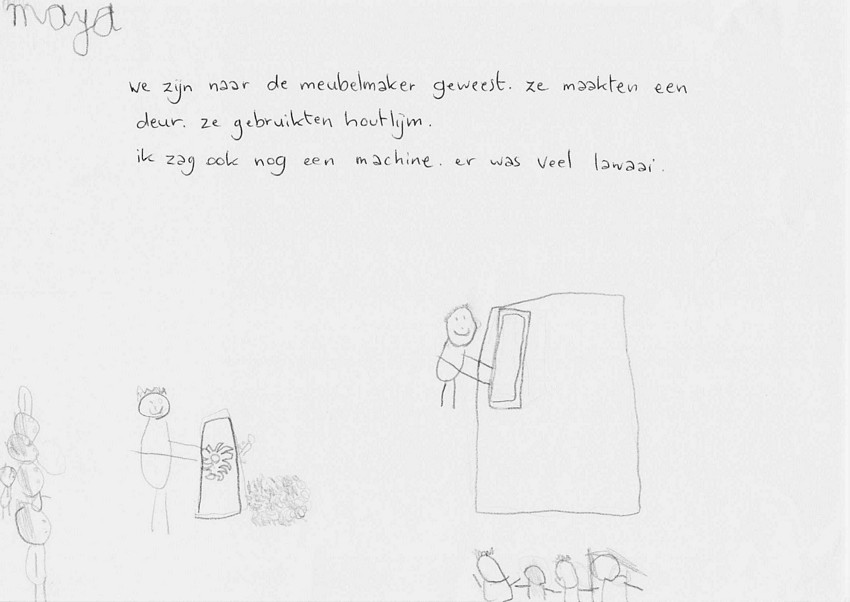 maya
we zijn naar de meubelmaker geweest. ze maakten een
deur. ze gebruikten houtlijm.
ik zag ook nog een machine. er was veel lawaai.